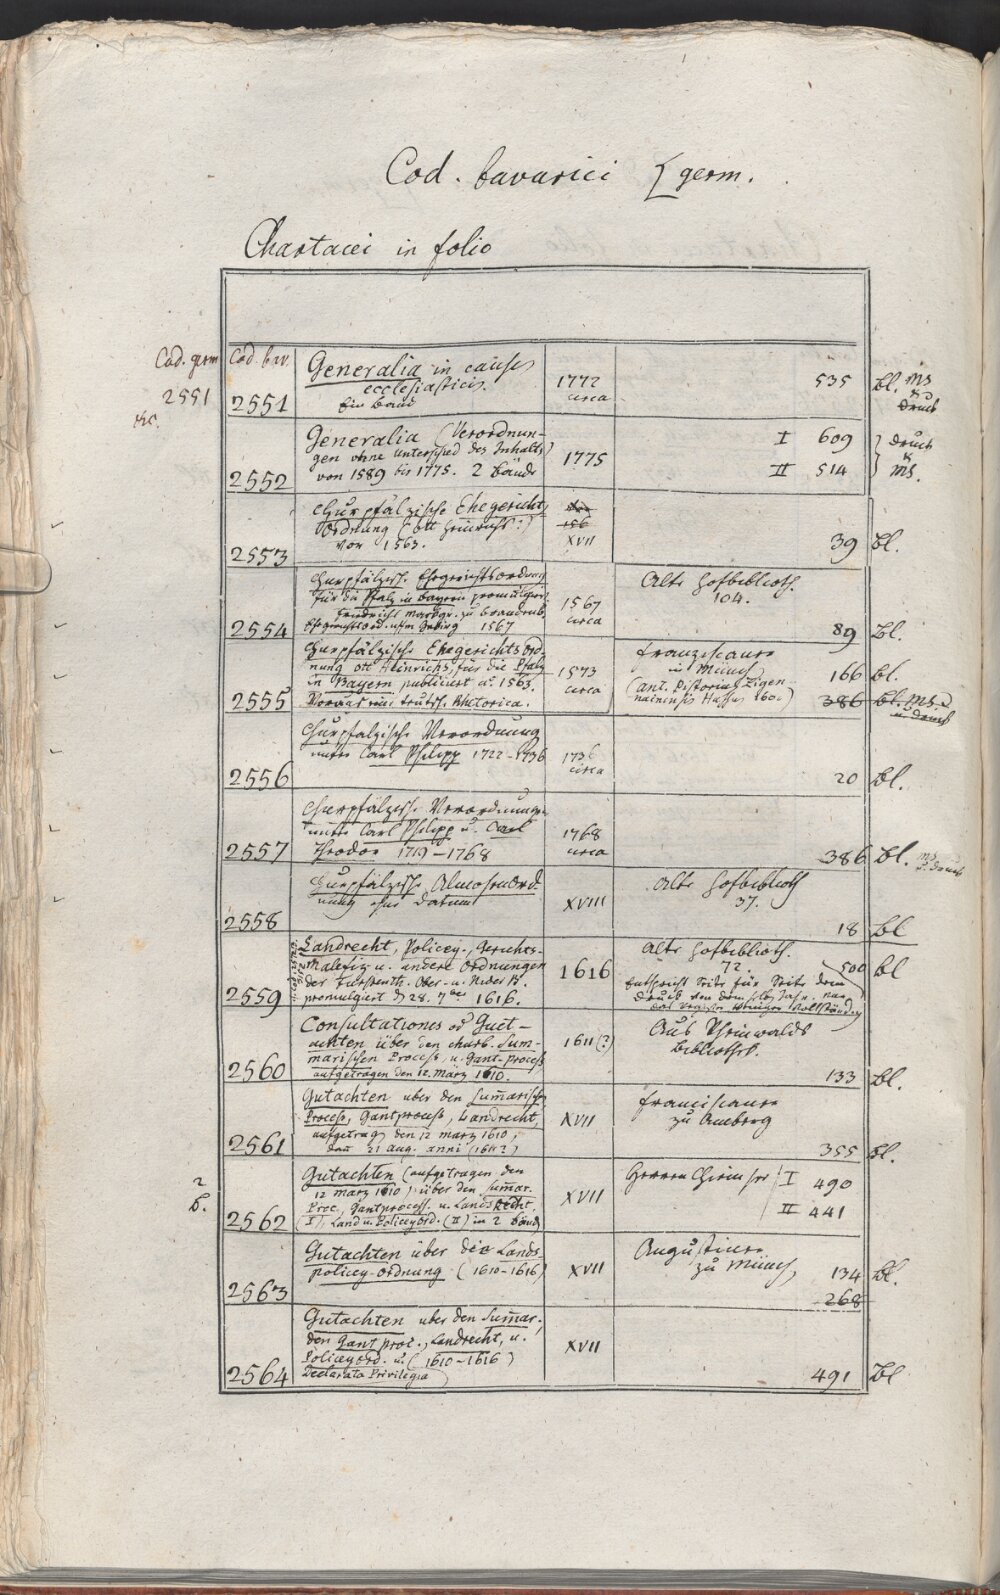 Cod. bavarici [germ.
Chartacei in folio
Cod. germ
2551
etc.
Cod. bav.
2551
Generalia in causis
ecclesiasticis.
Ein Band
1772
circa
535
Bl. Ms
Druck
2552
Generalia (Verordnun-
gen ohne Unterschied des Inhalts)
von 1589 bis 1775. 2 Bände
1775
I 609
II 514
Druck
Ms.
2553
Churpfälzische Ehegerichts
Ordnung (Ott Heinrichs?)
von 1563.
156
XVII
39 Bl.
2554
Churpfälzisch. Ehegerichtsordnung
für die Pfalz in Bayern
Friedrichs Markgr. zu Brandenb.
Ehegerichtsord. Gebirg 1567
1567
circa
Alte Hofbiblioth.
104.
89 Bl.
2555
Churpfälzische Ehegerichts Ord-
nung Ott Heinrichs, für die Pfalz
in Bayern publicirt aº. 1563.
Voraus eine teutsch. Rhetorica.
1573
circa
Franziscaner
in Münch
(ant. Pistorius Zigen-
hainensis Hassus 160.)
166 Bl.
386 Bl. Ms. u.
u. Druck
2556
Churpfalzische Verordnung
unter Carl Philipp 1722-1736
1736
circa
20 Bl.
2557
Churpfälzische Verordnungen
unter Carl Philipp u. Carl
Theodor 1719-1768
1768
circa
386 Bl. Ms
u. Druck
2558
Churpfälzische Almosenord-
nung ohne Datum
XVIII
Alte Hofbiblioth
37.
18 Bl
2559
Landrecht, Policey-, Gerichts-
Malefiz- u. andere Ordnungen
der Fürstenth. Ober- u. Nider B.
promulgiert d. 28. 7ber 1616.
1616
Alte Hofbiblioth.
72.
500 Bl
Entspricht Seite für Seite dem
Druck von dem selben Jahr, nur
das Register weniger vollständig
2560
Consultationes od Guet-
achten über den churb. Sum-
marischen Process u. Gant-process
aufgetragen den 12. März 1610.
1611(?)
Aus Rheinwalds
Bibliothek.
133 Bl.
2561
Gutachten uber den Sum̄arisch.
Process, Gantprocess, Landrecht,
aufgetrag. den 12 März 1610,
dan 21 Aug. anni (1611?)
XVII
Franciscaner
zu Amberg
355 Bl.
2
b.
2562
Gutachten (aufgetragen den
12 März 1610) über den Sum̄ar.
Proc., Gantprocess. u. Landrecht,
(I), Land u. Policeyord. (II) in 2 Bänd.
XVII
Herren Chiemsee
I 490
II 441
2563
Gutachten über die Lands-
policey-Ordnung (1610-1616)
XVII
Augustiner
zu Münch
134 Bl.
268
2564
Gutachten uber den Sum̄ar.,
den Gant proc., Landrecht, u.
Policeyord. u. (1610-1616)
Declarata Privilegia
XVII
491 Bl